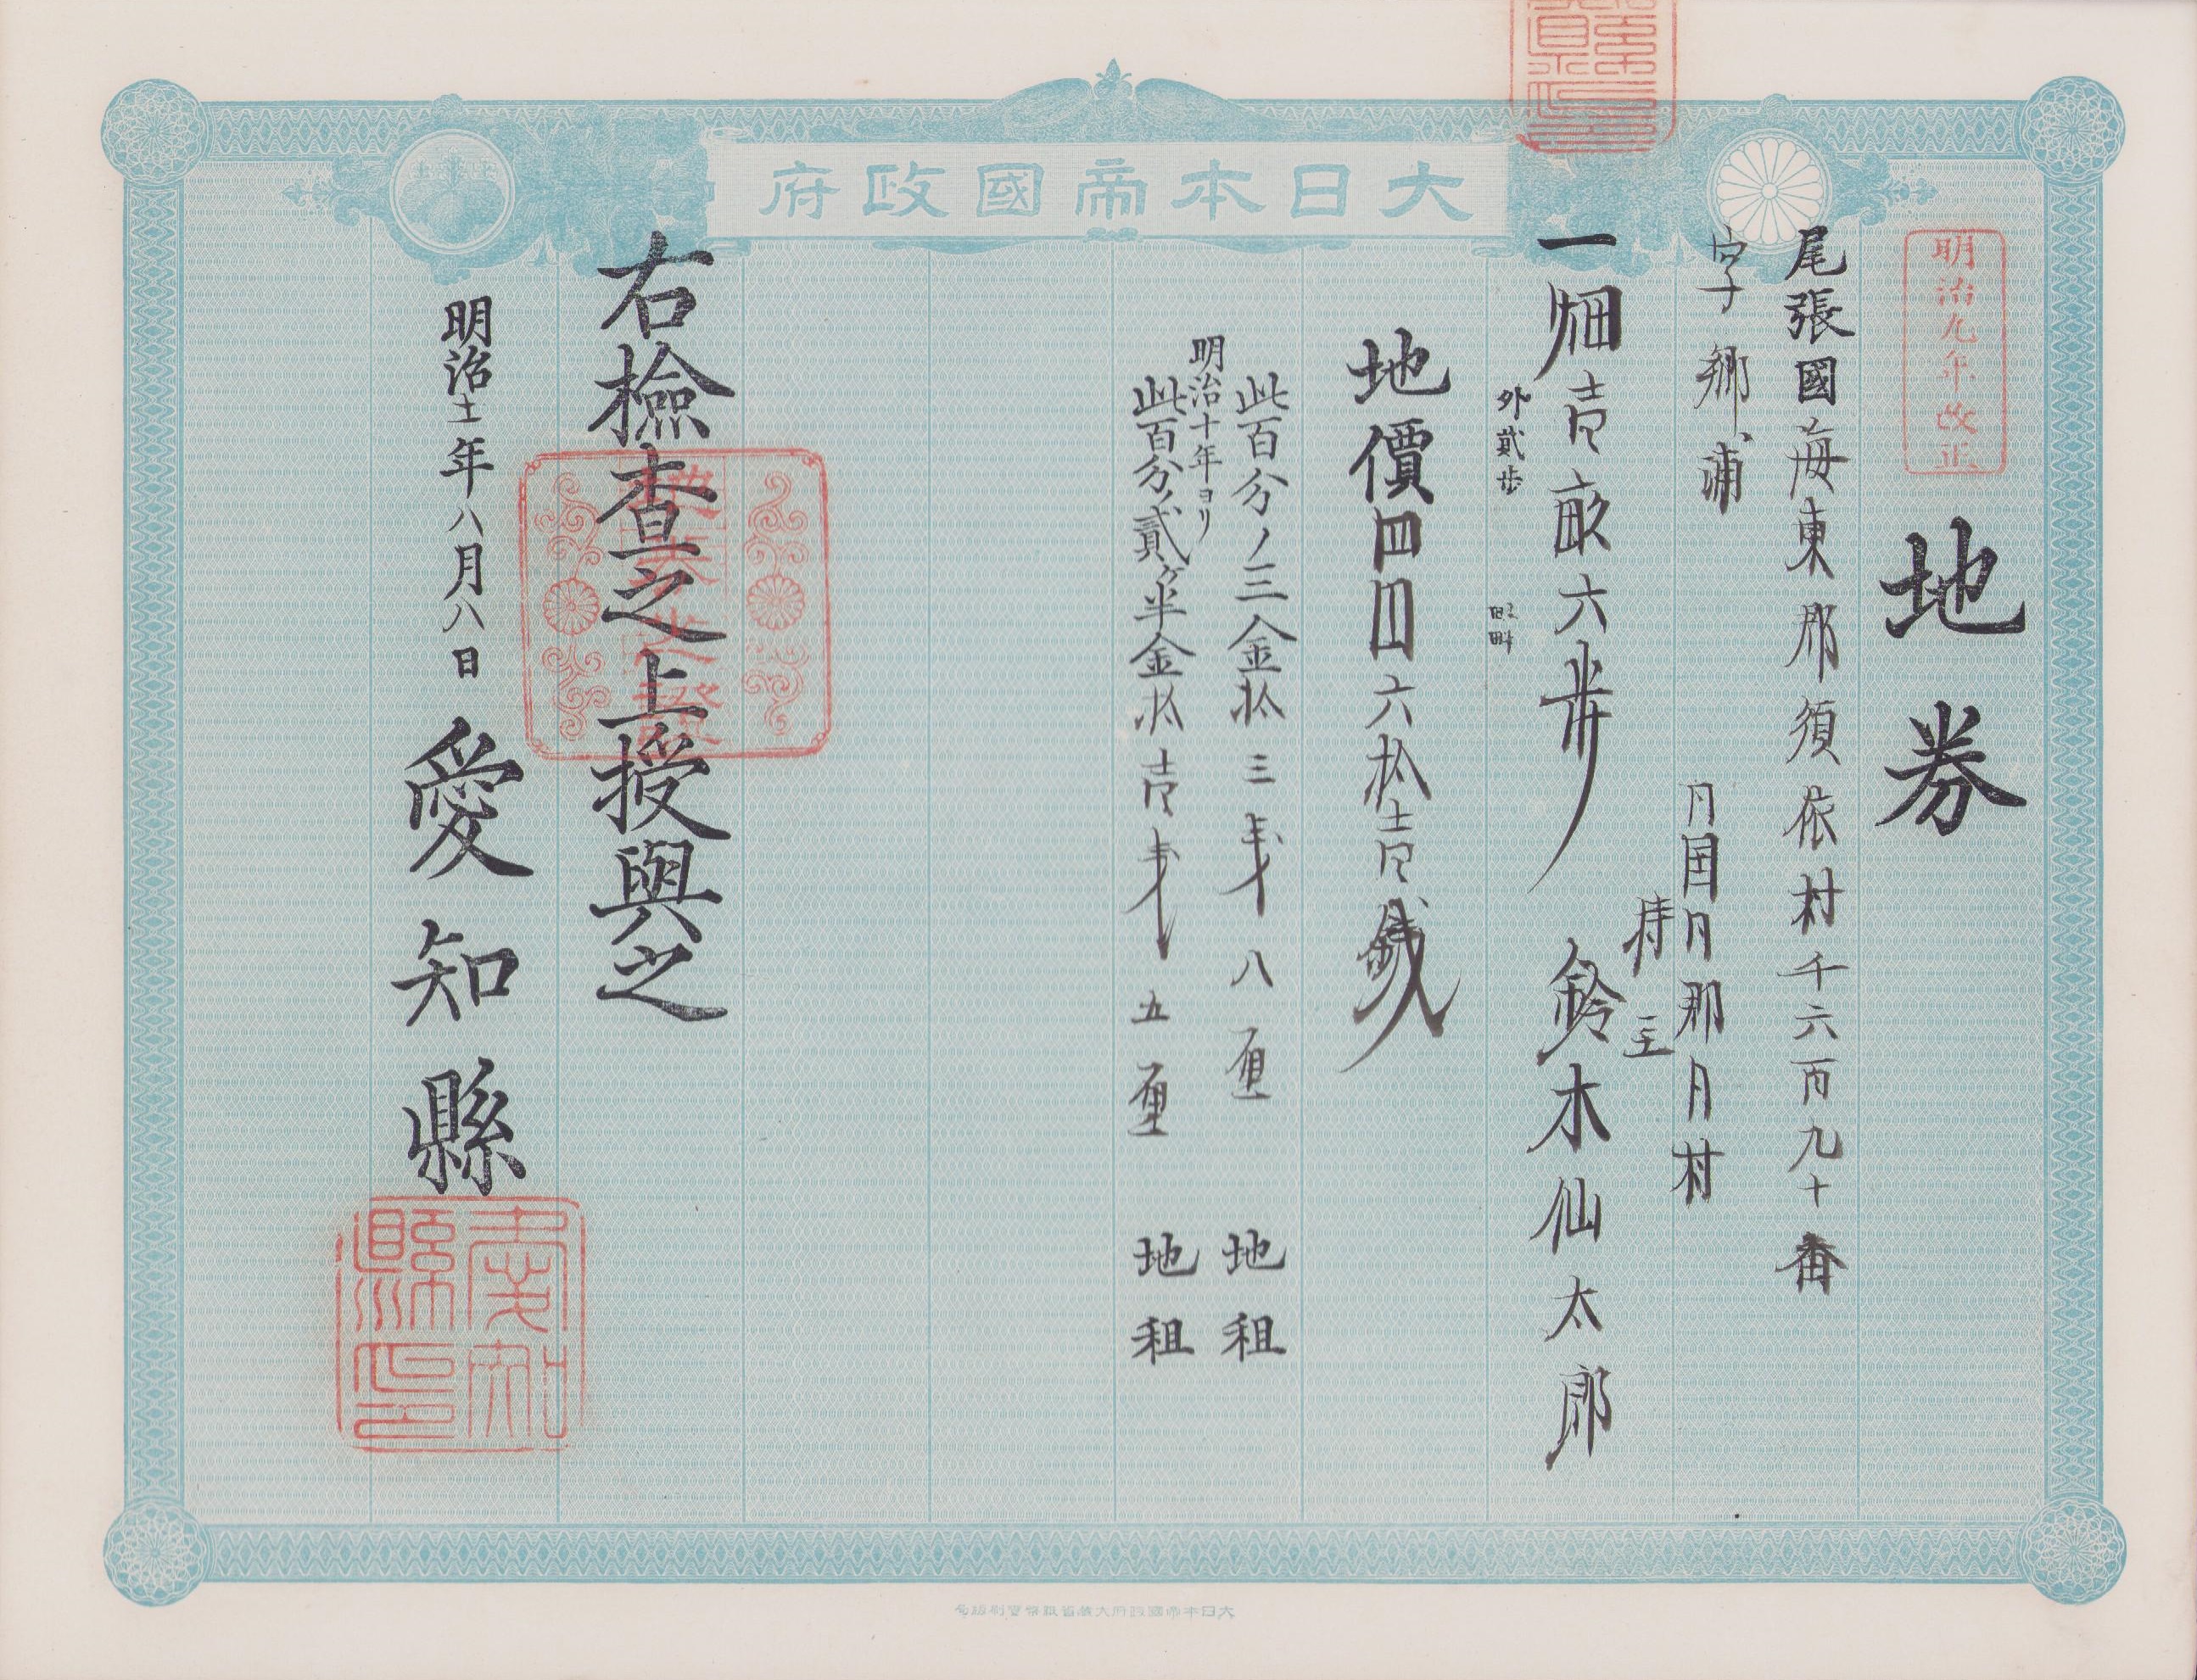 大日本帝國政府
明治九年改正
地券
尾張國海東郡須依村千六百九十番
字郷浦
同国同郡同村
持主
一畑壱畝六歩 鈴木仙太郎
外貳歩 畦畔
地價四円六拾壱銭
此百分ノ三金拾三銭八厘 地租
明治十年ヨリ
此百分ノ貳ヶ半金拾壱銭五厘 地租
右檢査之上授與之
明治十二年八月八日 愛知縣
愛知縣印
大日本帝國政府大蔵省紙幣寮製造